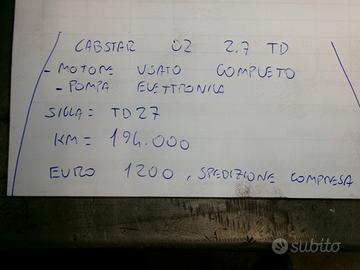 CABSTAR 02 2.7 TD
- MOTORE USATO COMPLETO
- POMPA ELETTRONICA
SIGLA = TD27
KM = 194.000
EURO 1200, SPEDIZIONE COMPRESA
subito